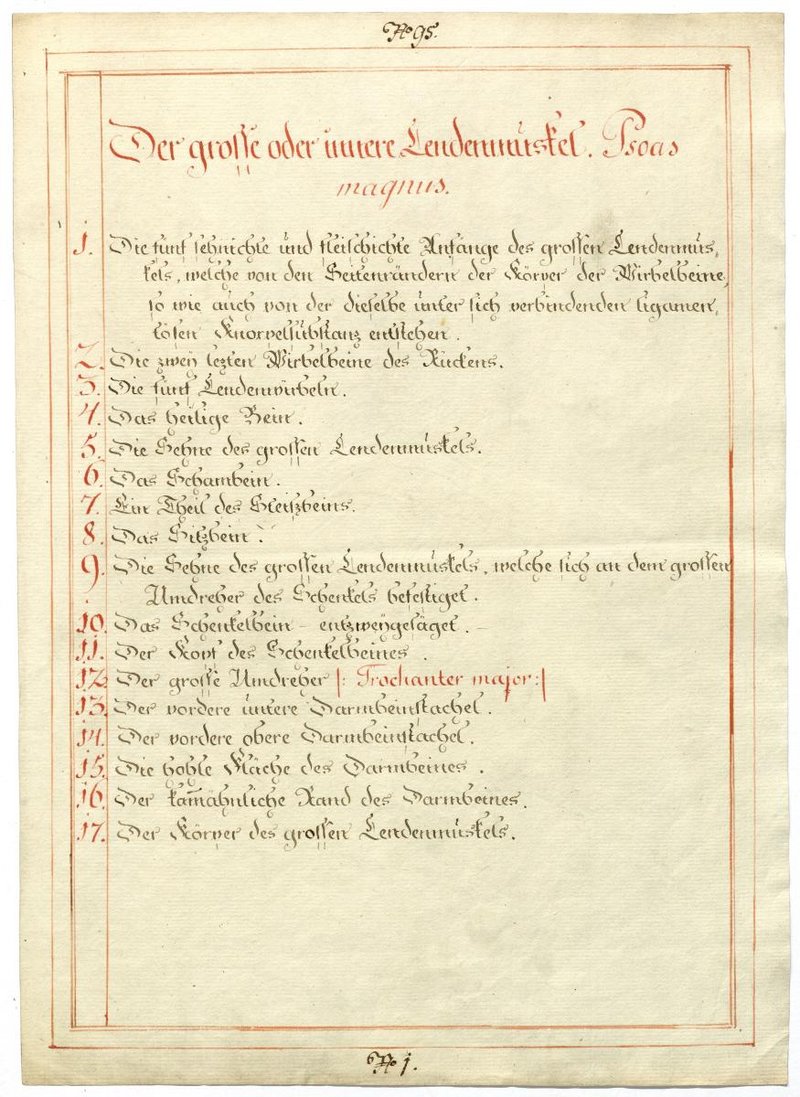 No 95.
Der grosse oder innere Lendenmuskel. Psoas
magnus.
1. Die fünf sehnichte und fleischichte Anfänge des grossen Lendenmus,
kels, welche von den Seitenrändern der Körper der Wirbelbeine,
so wie auch von der dieselbe unter sich verbindenden ligamen,
tösen Knorpelsubstanz entstehen.
2. Die zwey lezten Wirbelbeine des Ruckens.
3. Die fünf Lendenwirbeln.
4. Das heilige Bein.
5. Die Sehne des grossen Lendenmuskels.
6. Das Schambein.
7. Ein Theil des Steißbeins.
8. Das Sitzbein.
9. Die Sehne des grossen Lendenmuskels, welche sich an dem grossen
Umdreher des Schenkels befestiget.
10. Das Schenkelbein – entzweygesäget. –
11. Der Kopf des Schenkelbeines.
12. Der grosse Umdreher |: Trochanter major :|
13. Der vordere untere Darmbeinstachel.
14. Der vordere obere Darmbeinstachel.
15. Die hohle Fläche des Darmbeines.
16. Der kam̅ähnliche Rand des Darmbeines.
17. Der Körper des grossen Lendenmuskels.
No 1.